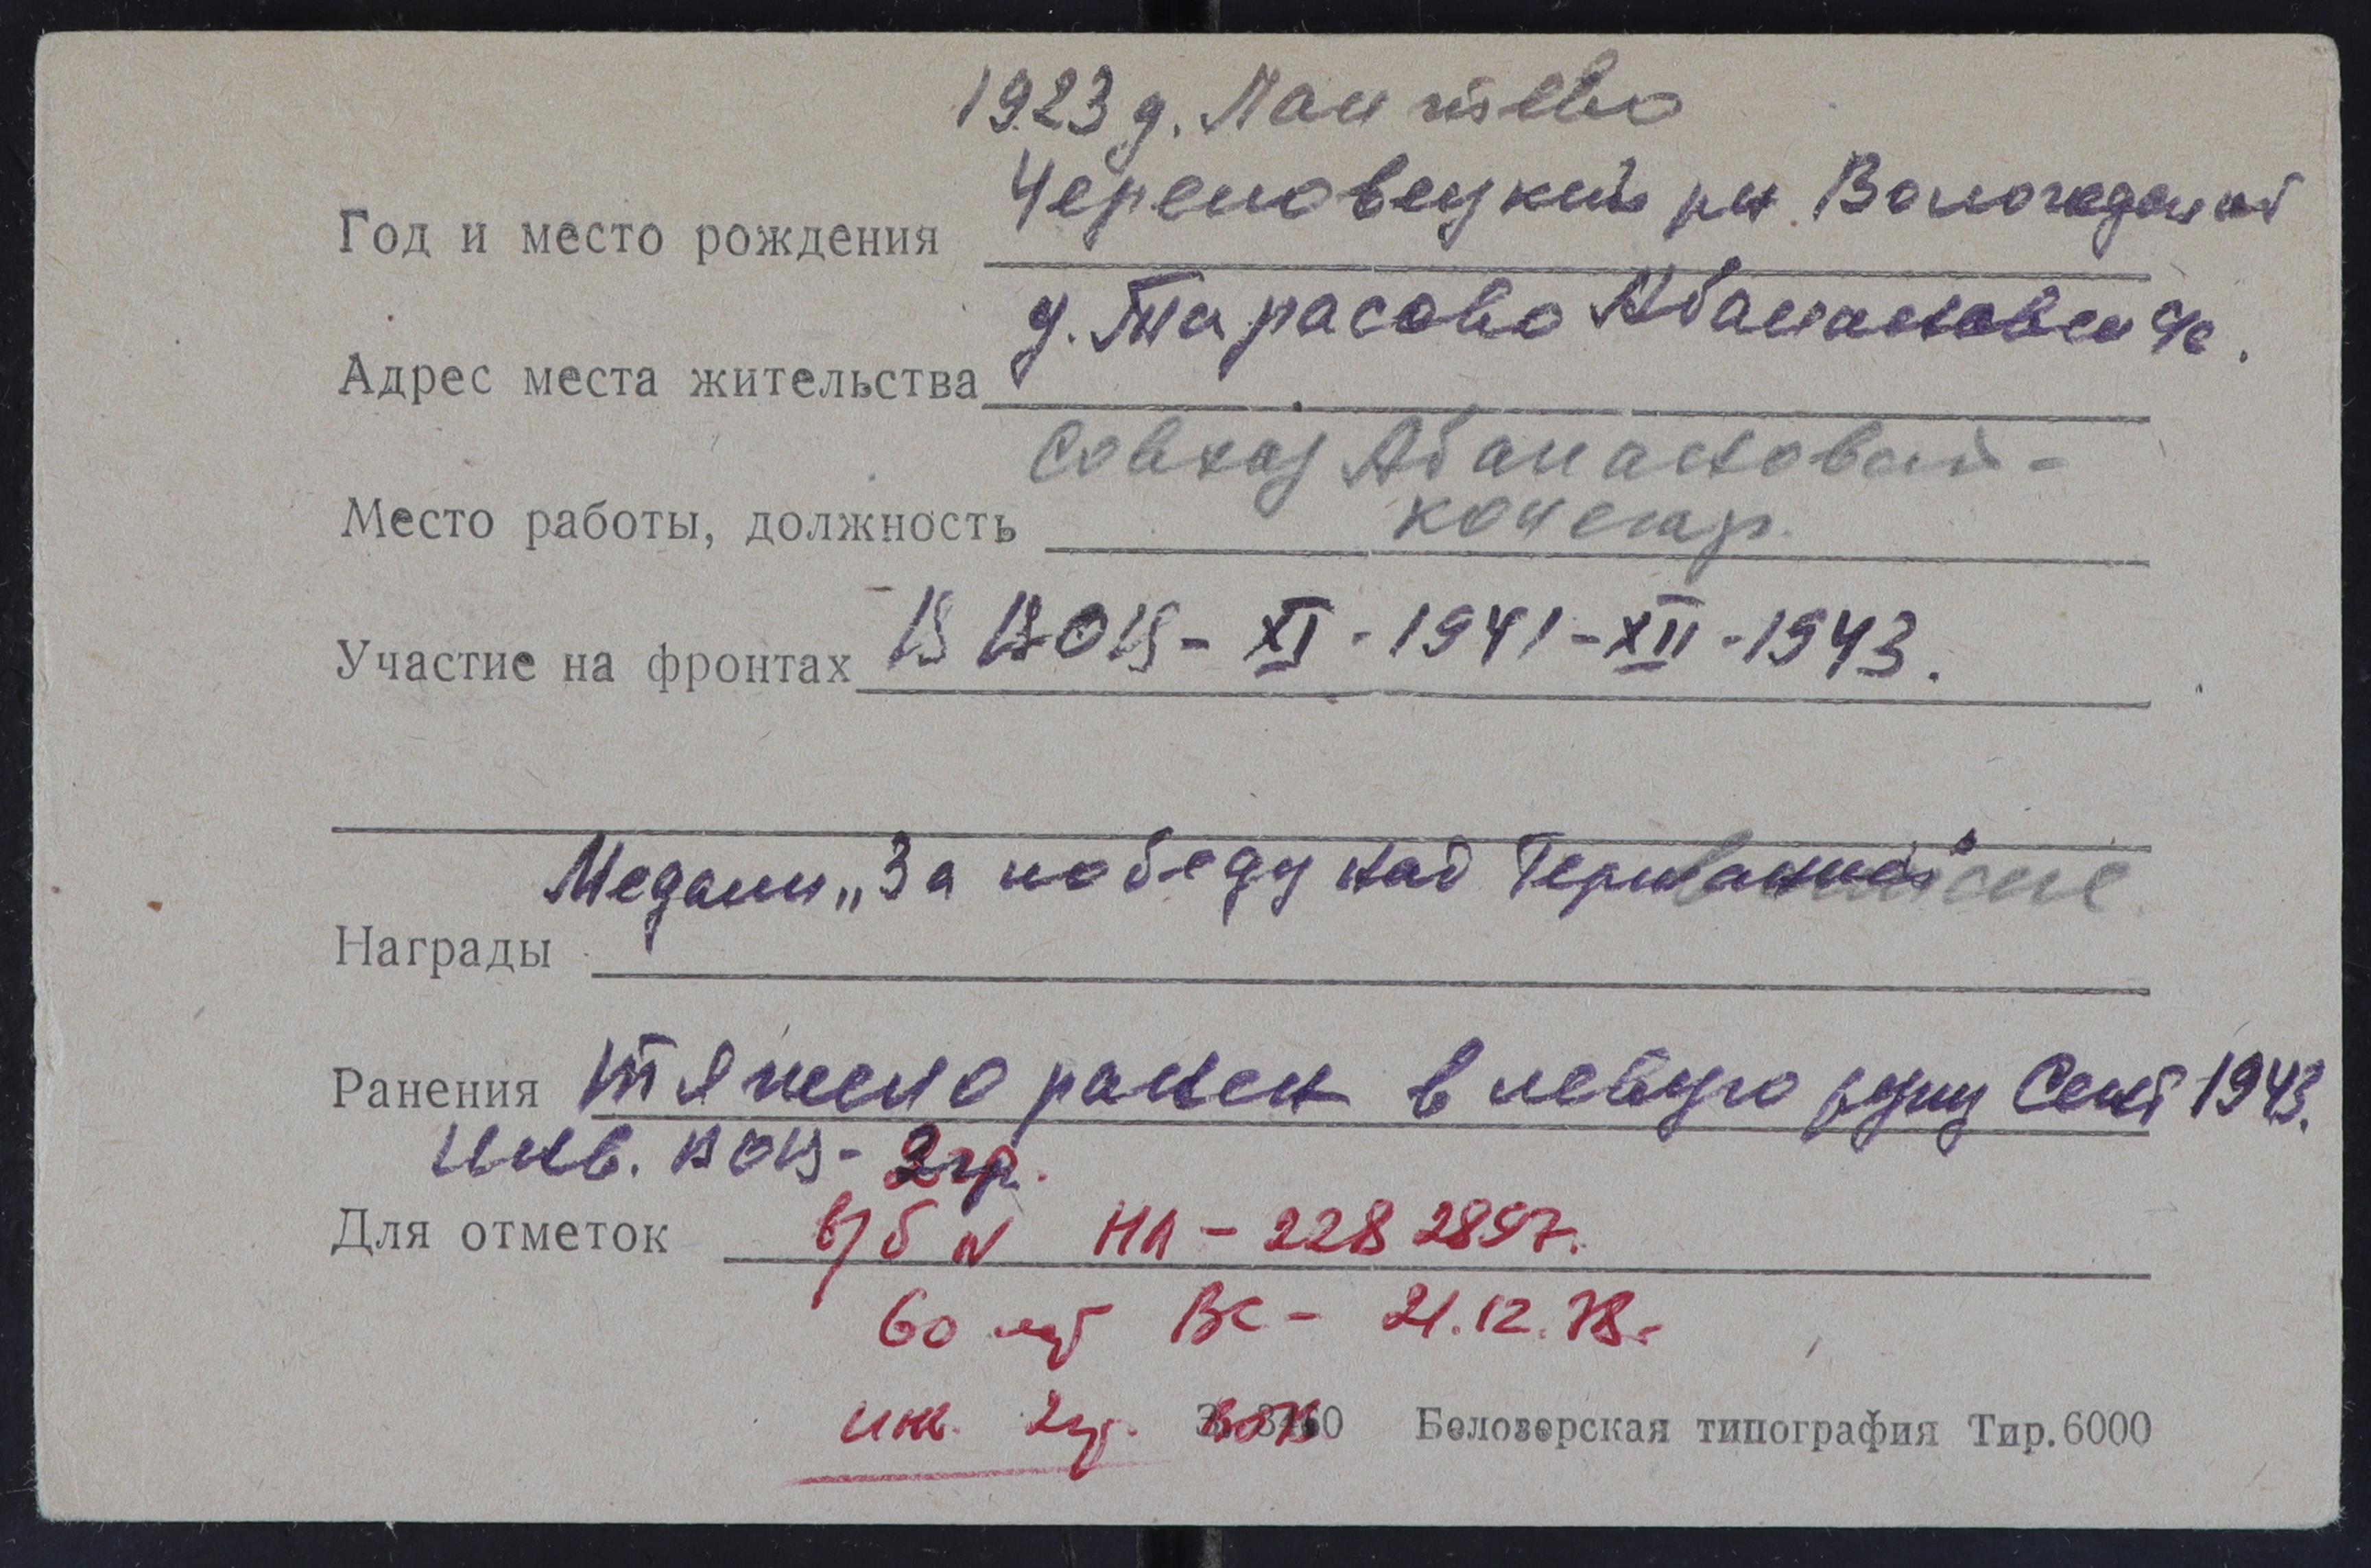 1923 д.
Череповецкий р-н Вологодской
Год и место рождения
д. Тарасово Абакановск с/с.
Адрес места жительства
Совхоз Абакановский -
Место работы, должность кочегар.
Участие на фронтах В ВОВ - XI - 1941 - XII - 1943.
Медали „За победу над Германией" юбилейные
Награды
Ранения тяжело ранен в левую руку Сент 1943.
Инв. ВОВ - 2 гр.
Для отметок в/б N НА - 228 2897.
60 лет ВС - 21.12.78.
инв. 2 гр. ВОВ
З. 3460 Белозерская типография Тир. 6000